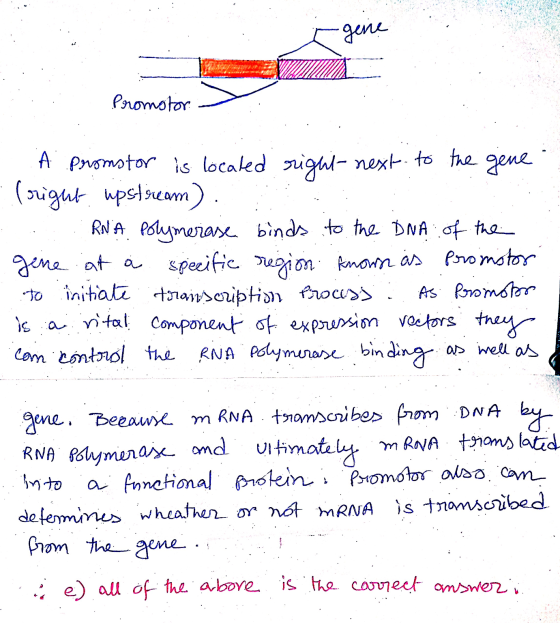 gene
Promotor
A promotor is located right-next to the gene
(right upstream).
RNA Polymerase binds to the DNA of the
gene at a specific region known as Promotor
to initiate transcription Process. As Promotor
is a vital component of expression vectors they
can control the RNA Polymerase binding as well as
gene. Because mRNA transcribes from DNA by
RNA Polymerase and Ultimately mRNA translated
into a functional protein. Promotor also can
determines wheather or not mRNA is transcribed
from the gene.
∴ e) all of the above is the correct answer.